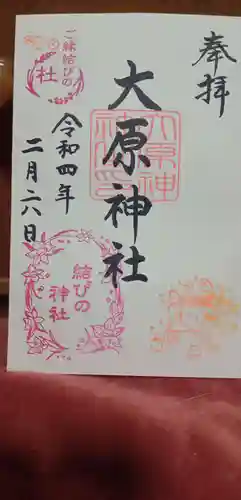 奉拝
大原神社
大原神社之印
令和四年
二月六日
ご縁結びの
社
結びの
神社